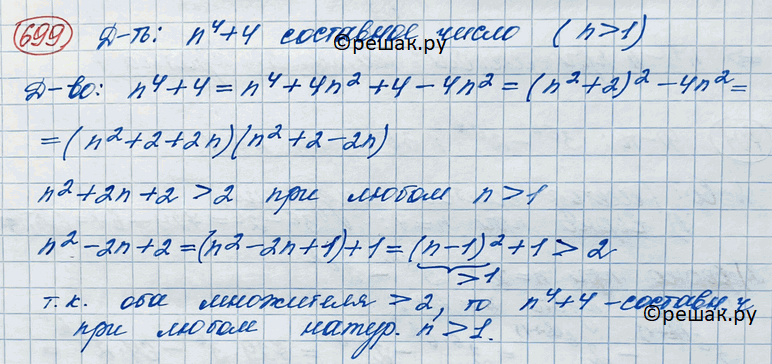 699 Д-ть: n⁴+4 составное число (n>1)
©решак.ру
Д-во: n⁴+4 = n⁴+4n²+4-4n² = (n²+2)²-4n² =
= (n²+2+2n)(n²+2-2n)
n²+2n+2 >2 при любом n>1
n²-2n+2 = (n²-2n+1)+1 = (n-1)²+1 ≥ 2
≥1
т.к. оба множителя ≥2, то n⁴+4 - составн ч
©решак.ру
при любом натур. n>1.